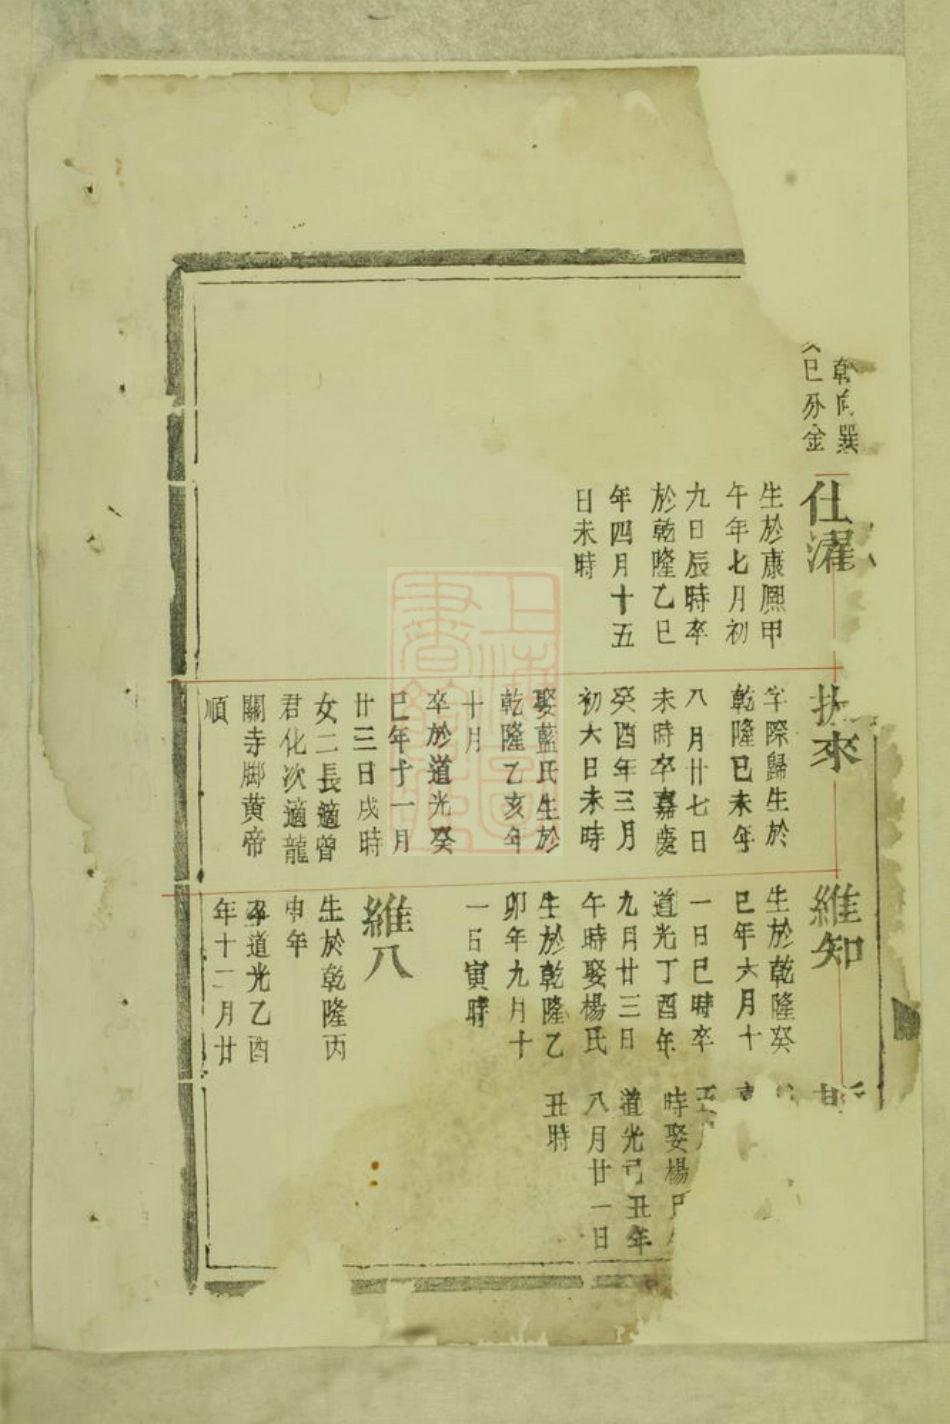 乾向巽
巳分金
仕濯
生於康熙甲
午年七月初
九日辰時卒
於乾隆乙巳
年四月十五
日未時
來
字際歸生於
乾隆己未年
八月廿七日
未時卒嘉慶
癸酉年三月
初六日未時
娶藍氏生於
乾隆乙亥年
十月
卒於道光癸
巳年十一月
廿三日戌時
女二長適曾
君化次適龍
關寺腳黄帝
順
維知
生於乾隆癸
巳年六月十
一日巳時卒
道光丁酉年
九月廿三日
午時娶楊氏
生於乾隆乙
卯年九月十
一日寅時
維八
生於乾隆丙
申年
卒道光乙酉
年十二月廿
時娶楊
道光丑年
八月廿一日
丑時